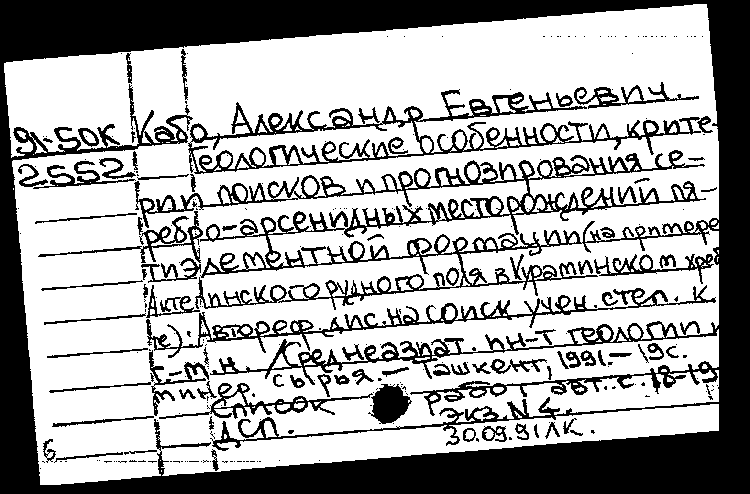 91-50К Кабо, Александр Евгеньевич.
2552 Геологические особенности, крите-
рии поисков и прогнозирования се-
ребро-арсенидных месторождений пя-
тиэлементной формации (на примере
Актепинского рудного поля в Кураминском хреб
те): Автореф. дис. на соиск. учен. степ. к.
г.-м.н. /Среднеазиат. ин-т геологии и
минер. сырья. - Ташкент, 1991. - 19с.
Список работ авт.: с. 18-19
ДСП. Экз. N 4.
30.09.91 ЛК.
6